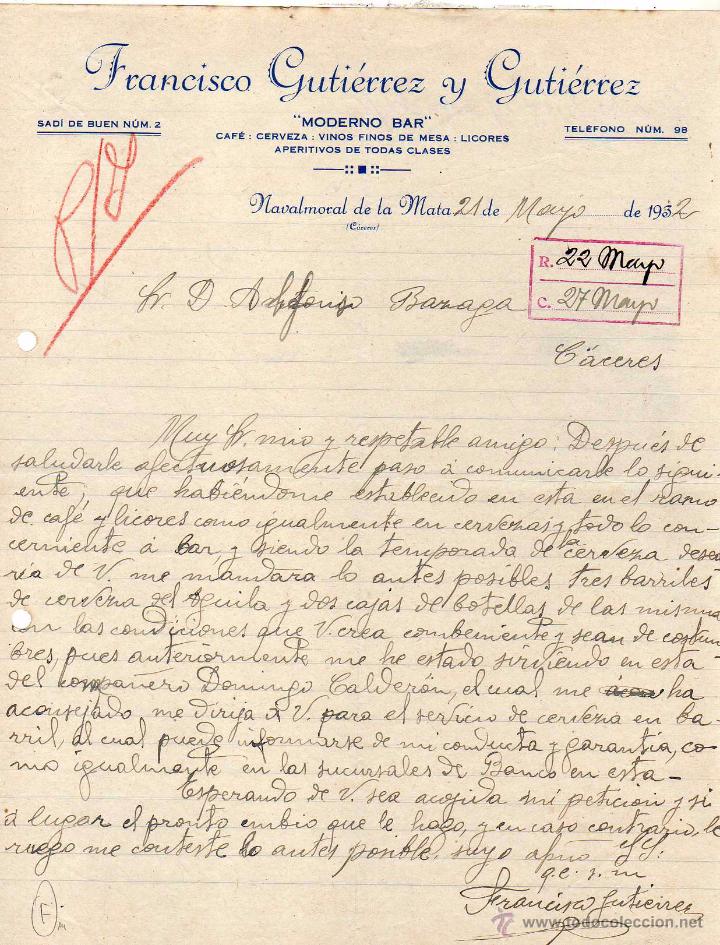 Francisco Gutiérrez y Gutiérrez
"MODERNO BAR"
SADÍ DE BUEN NÚM. 2
CAFÉ : CERVEZA : VINOS FINOS DE MESA : LICORES
TELÉFONO NÚM. 98
APERITIVOS DE TODAS CLASES
Navalmoral de la Mata 21 de Mayo de 1932
(Cáceres)
R. 22 Mayo
C. 27 Mayo
Sr. D Alfonso Bazaga
Cáceres
Muy Sr. mio y respetable amigo: Después de
saludarle afectuosamente paso á comunicarle lo sigui-
ente; que habiéndome establecido en esta en el ramo
de café y licores como igualmente en cervezas y todo lo con-
cerniente á bar, y siendo la temporada de la cerveza desea
ría de V. me mandara lo antes posibles tres barriles
de cerveza del Aguila y dos cajas de botellas de las misma
con las condiciones que V. crea combeniente y sean de costum
bres, pues anteriormente me he estado sirviendo en esta
del compañero Domingo Calderón, el cual me ha
aconsejado me dirija á V. para el servicio de cerveza en ba-
rril, al cual puede informarse de mi conducta y garantía, co-
mo igualmente en las sucursales de Banco en esta-
Esperando de V. sea acojida mi peticion y si
á lugar el pronto embio que le hago, y en caso contrario, le
ruego me conteste lo antes posible, suyo afmo SS.
q.e.s.m
Francisco Gutierrez
F
www.todocoleccion.net